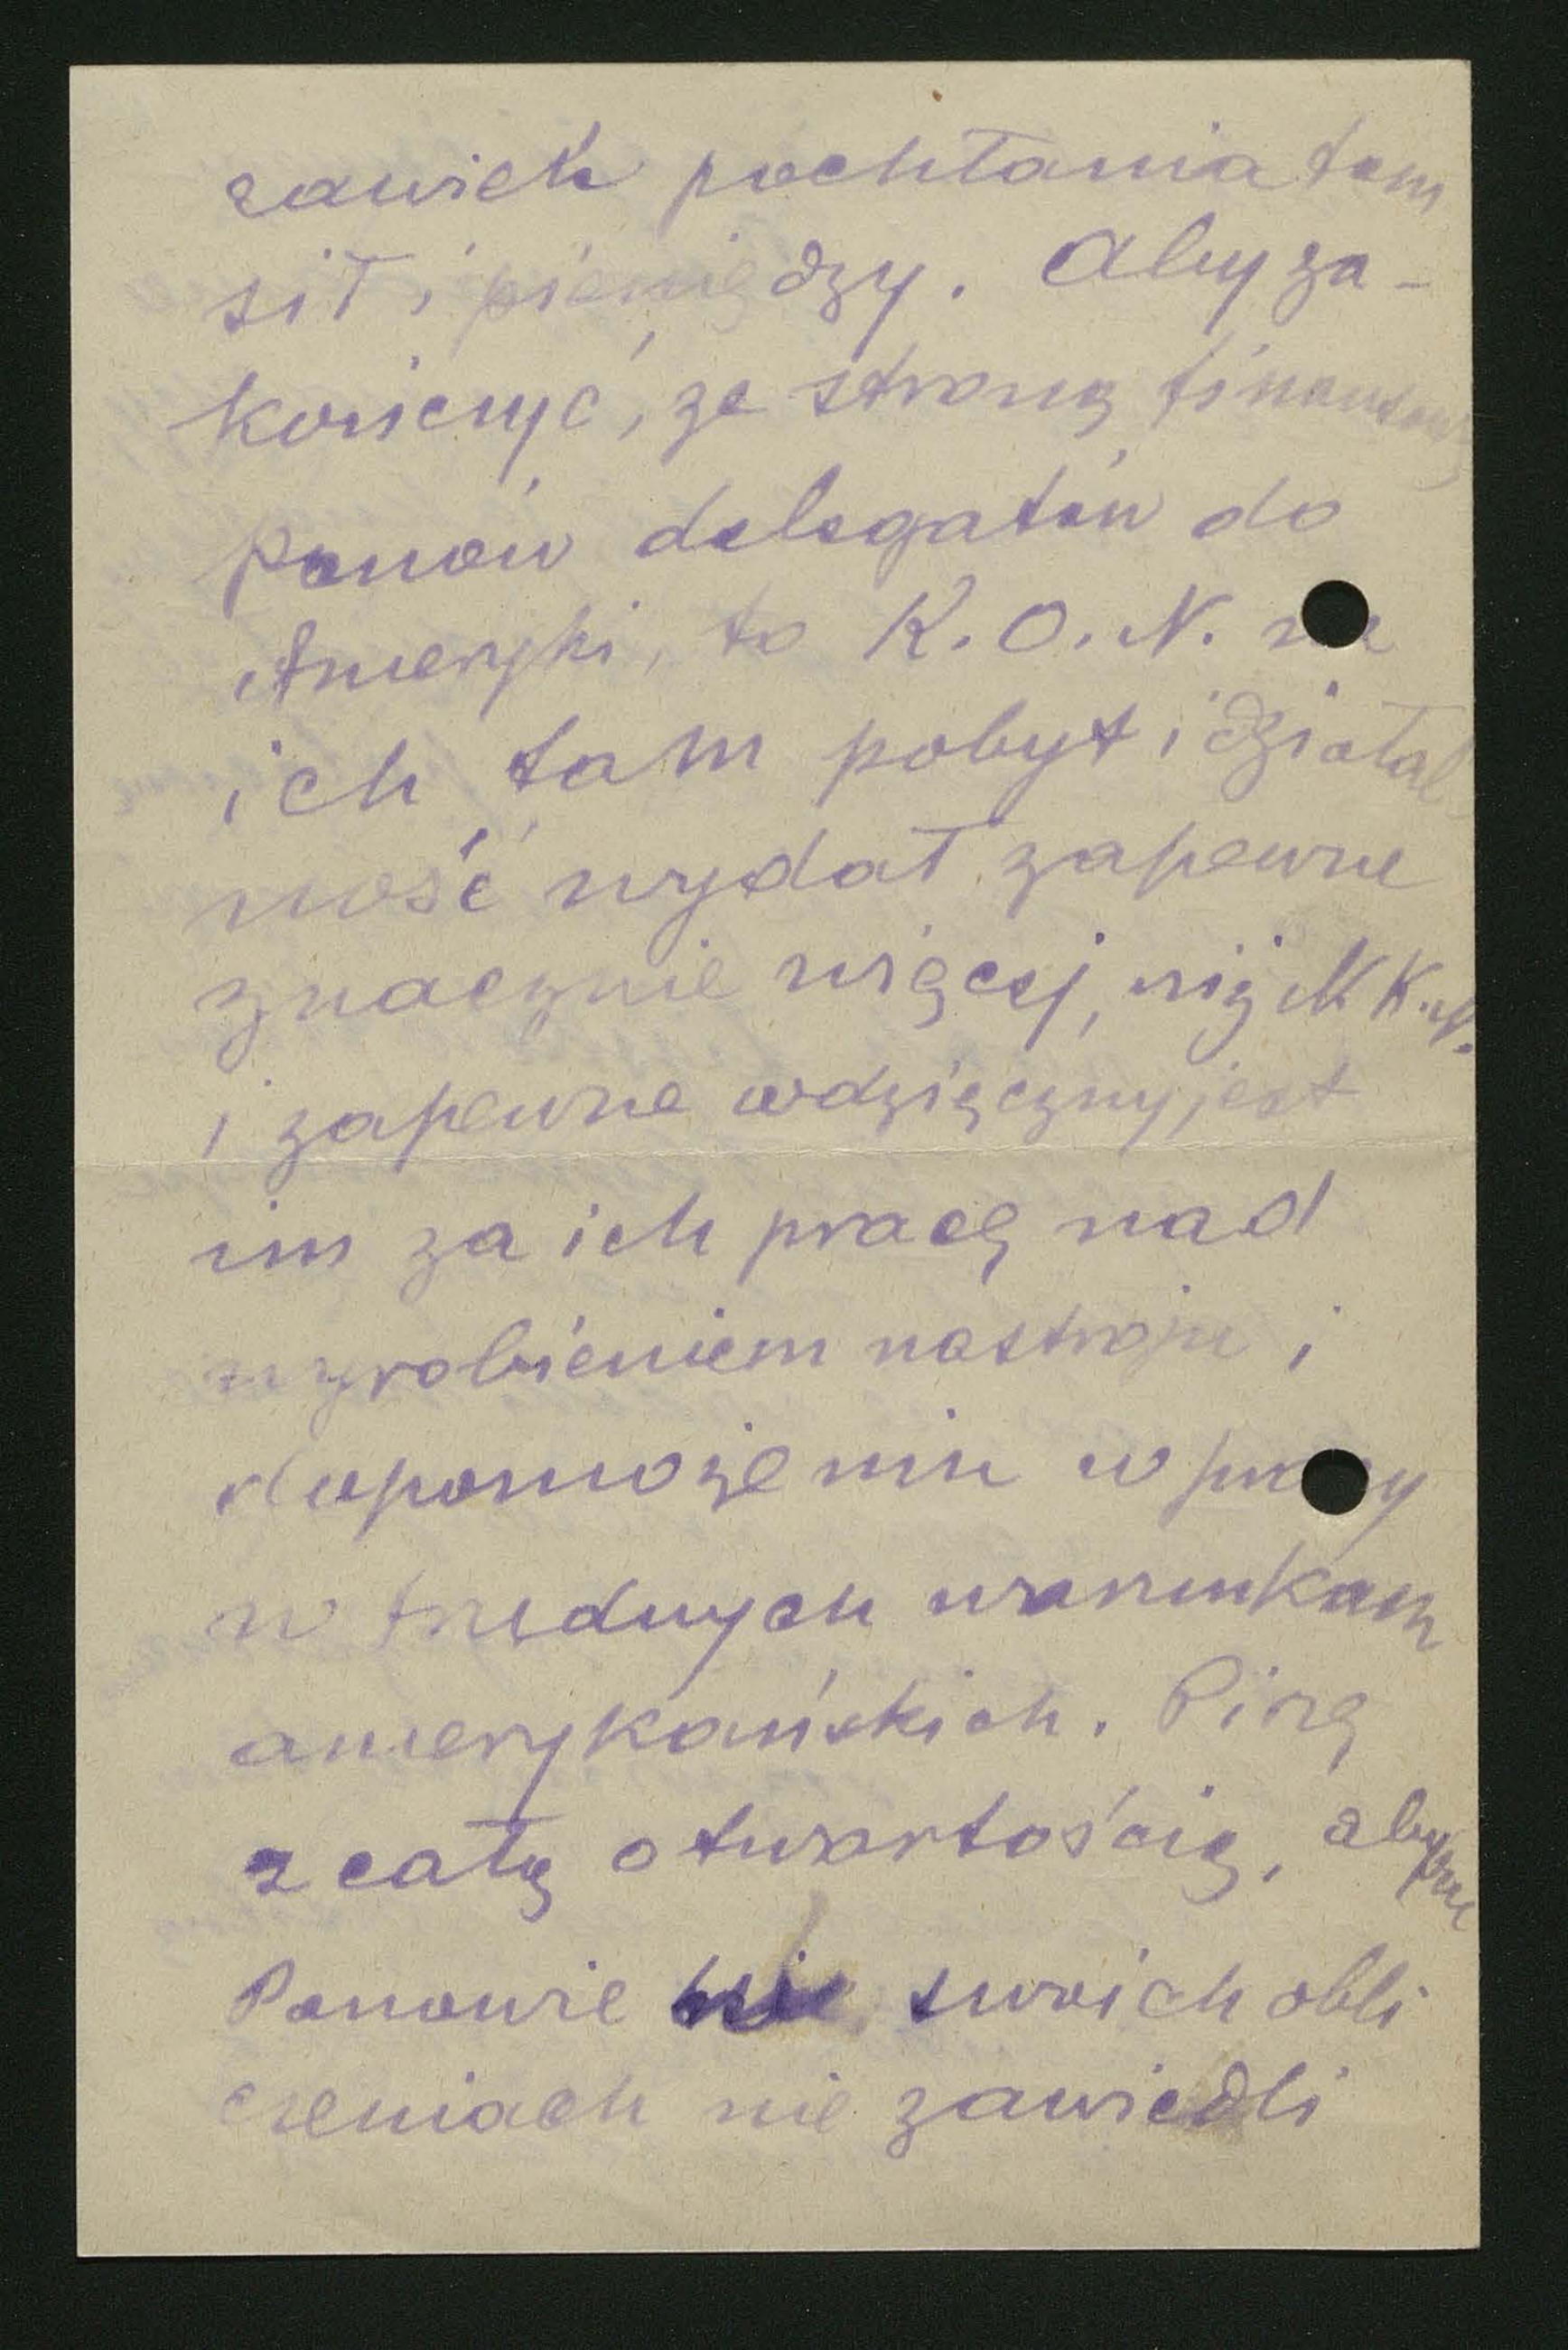 rawiek pochłania tam
sił i pieniędzy. Aby za-
kończyć, ze stroną finansową
Panów delegatów do
Ameryki, to K.O.N. na
ich tam pobyt i działal
ność wydał zapewne
znacznie więcej, niż N.K.N.
i zapewne wdzięczny jest
im za ich pracę nad
wyrobieniem nastroju i
dopomożeniu w pracy
w trudnych warunkach
amerykańskich. Piszę
z całą otwartością, aby
Panowie swoich obli
czeniach nie zawiedli